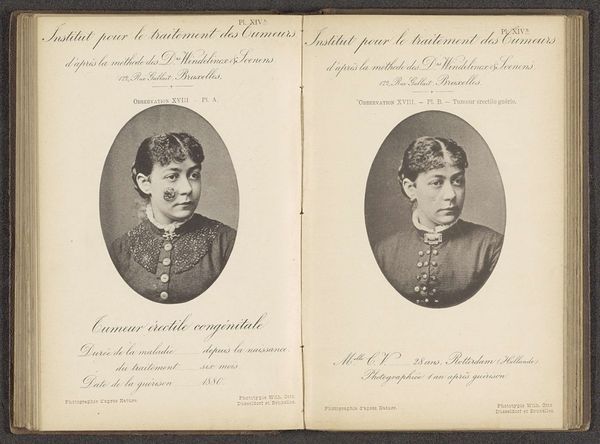 Pl. XIVa
Institut pour le traitement des Tumeurs
d'après la méthode des Drs Wendelincx & Soenens
172, Rue Gallait, Bruxelles.
Observation XVIII — Pl. A.
Tumeur érectile congénitale
Durée de la maladie depuis la naissance.
du traitement six mois
Date de la guérison 1880.
Photographie d'après Nature.
Phototypie Wilh. Otto
Dusseldorf et Bruxelles.
Pl. XIVb
Institut pour le traitement des Tumeurs
d'après la méthode des Drs Wendelincx & Soenens
172, Rue Gallait, Bruxelles.
Observation XVIII. — Pl. B. — Tumeur érectile guérie.
Melle C. V. 28 ans, Rotterdam (Hollande)
Photographiée 1 an après guérison
Photographie d'après Nature.
Phototypie Wilh. Otto
Dusseldorf et Bruxelles.